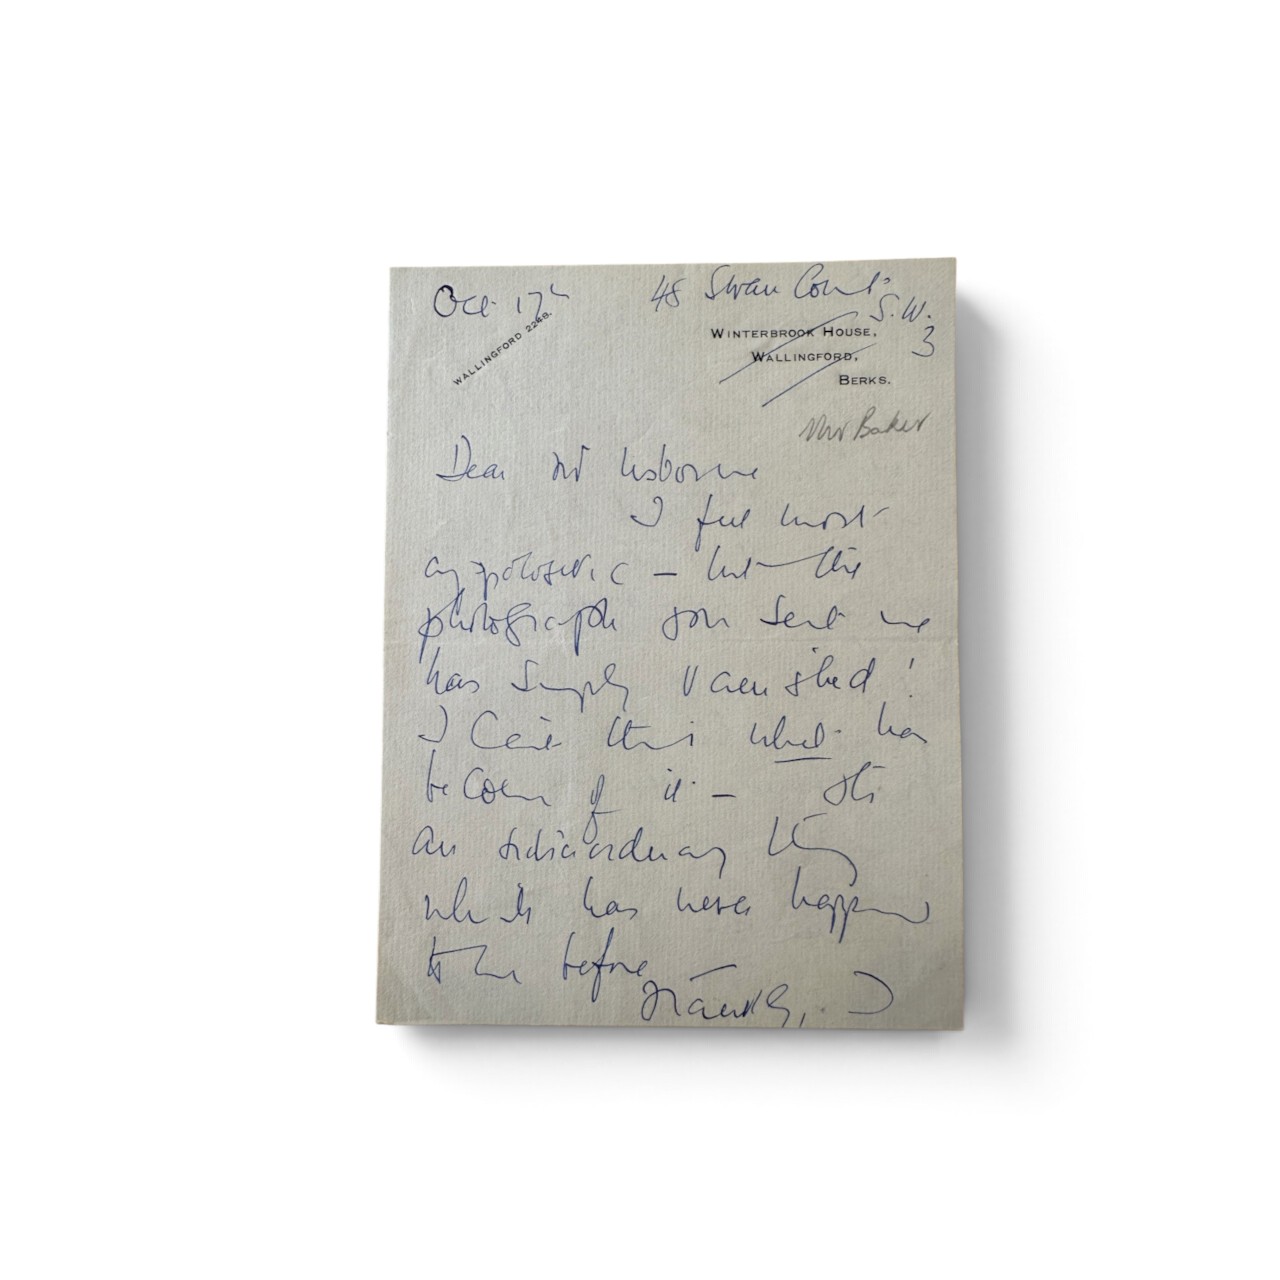 Oct 17th
48 Swan Court
S.W.
3
WALLINGFORD 2248.
WINTERBROOK HOUSE,
WALLINGFORD,
BERKS.
Mr Baker
Dear Mr Usborne
I feel most
apologetic – but the
photograph you sent me
has simply vanished!
I can't think what has
become of it –
an extraordinary thing
which has never happened
to me before
Frankly, I